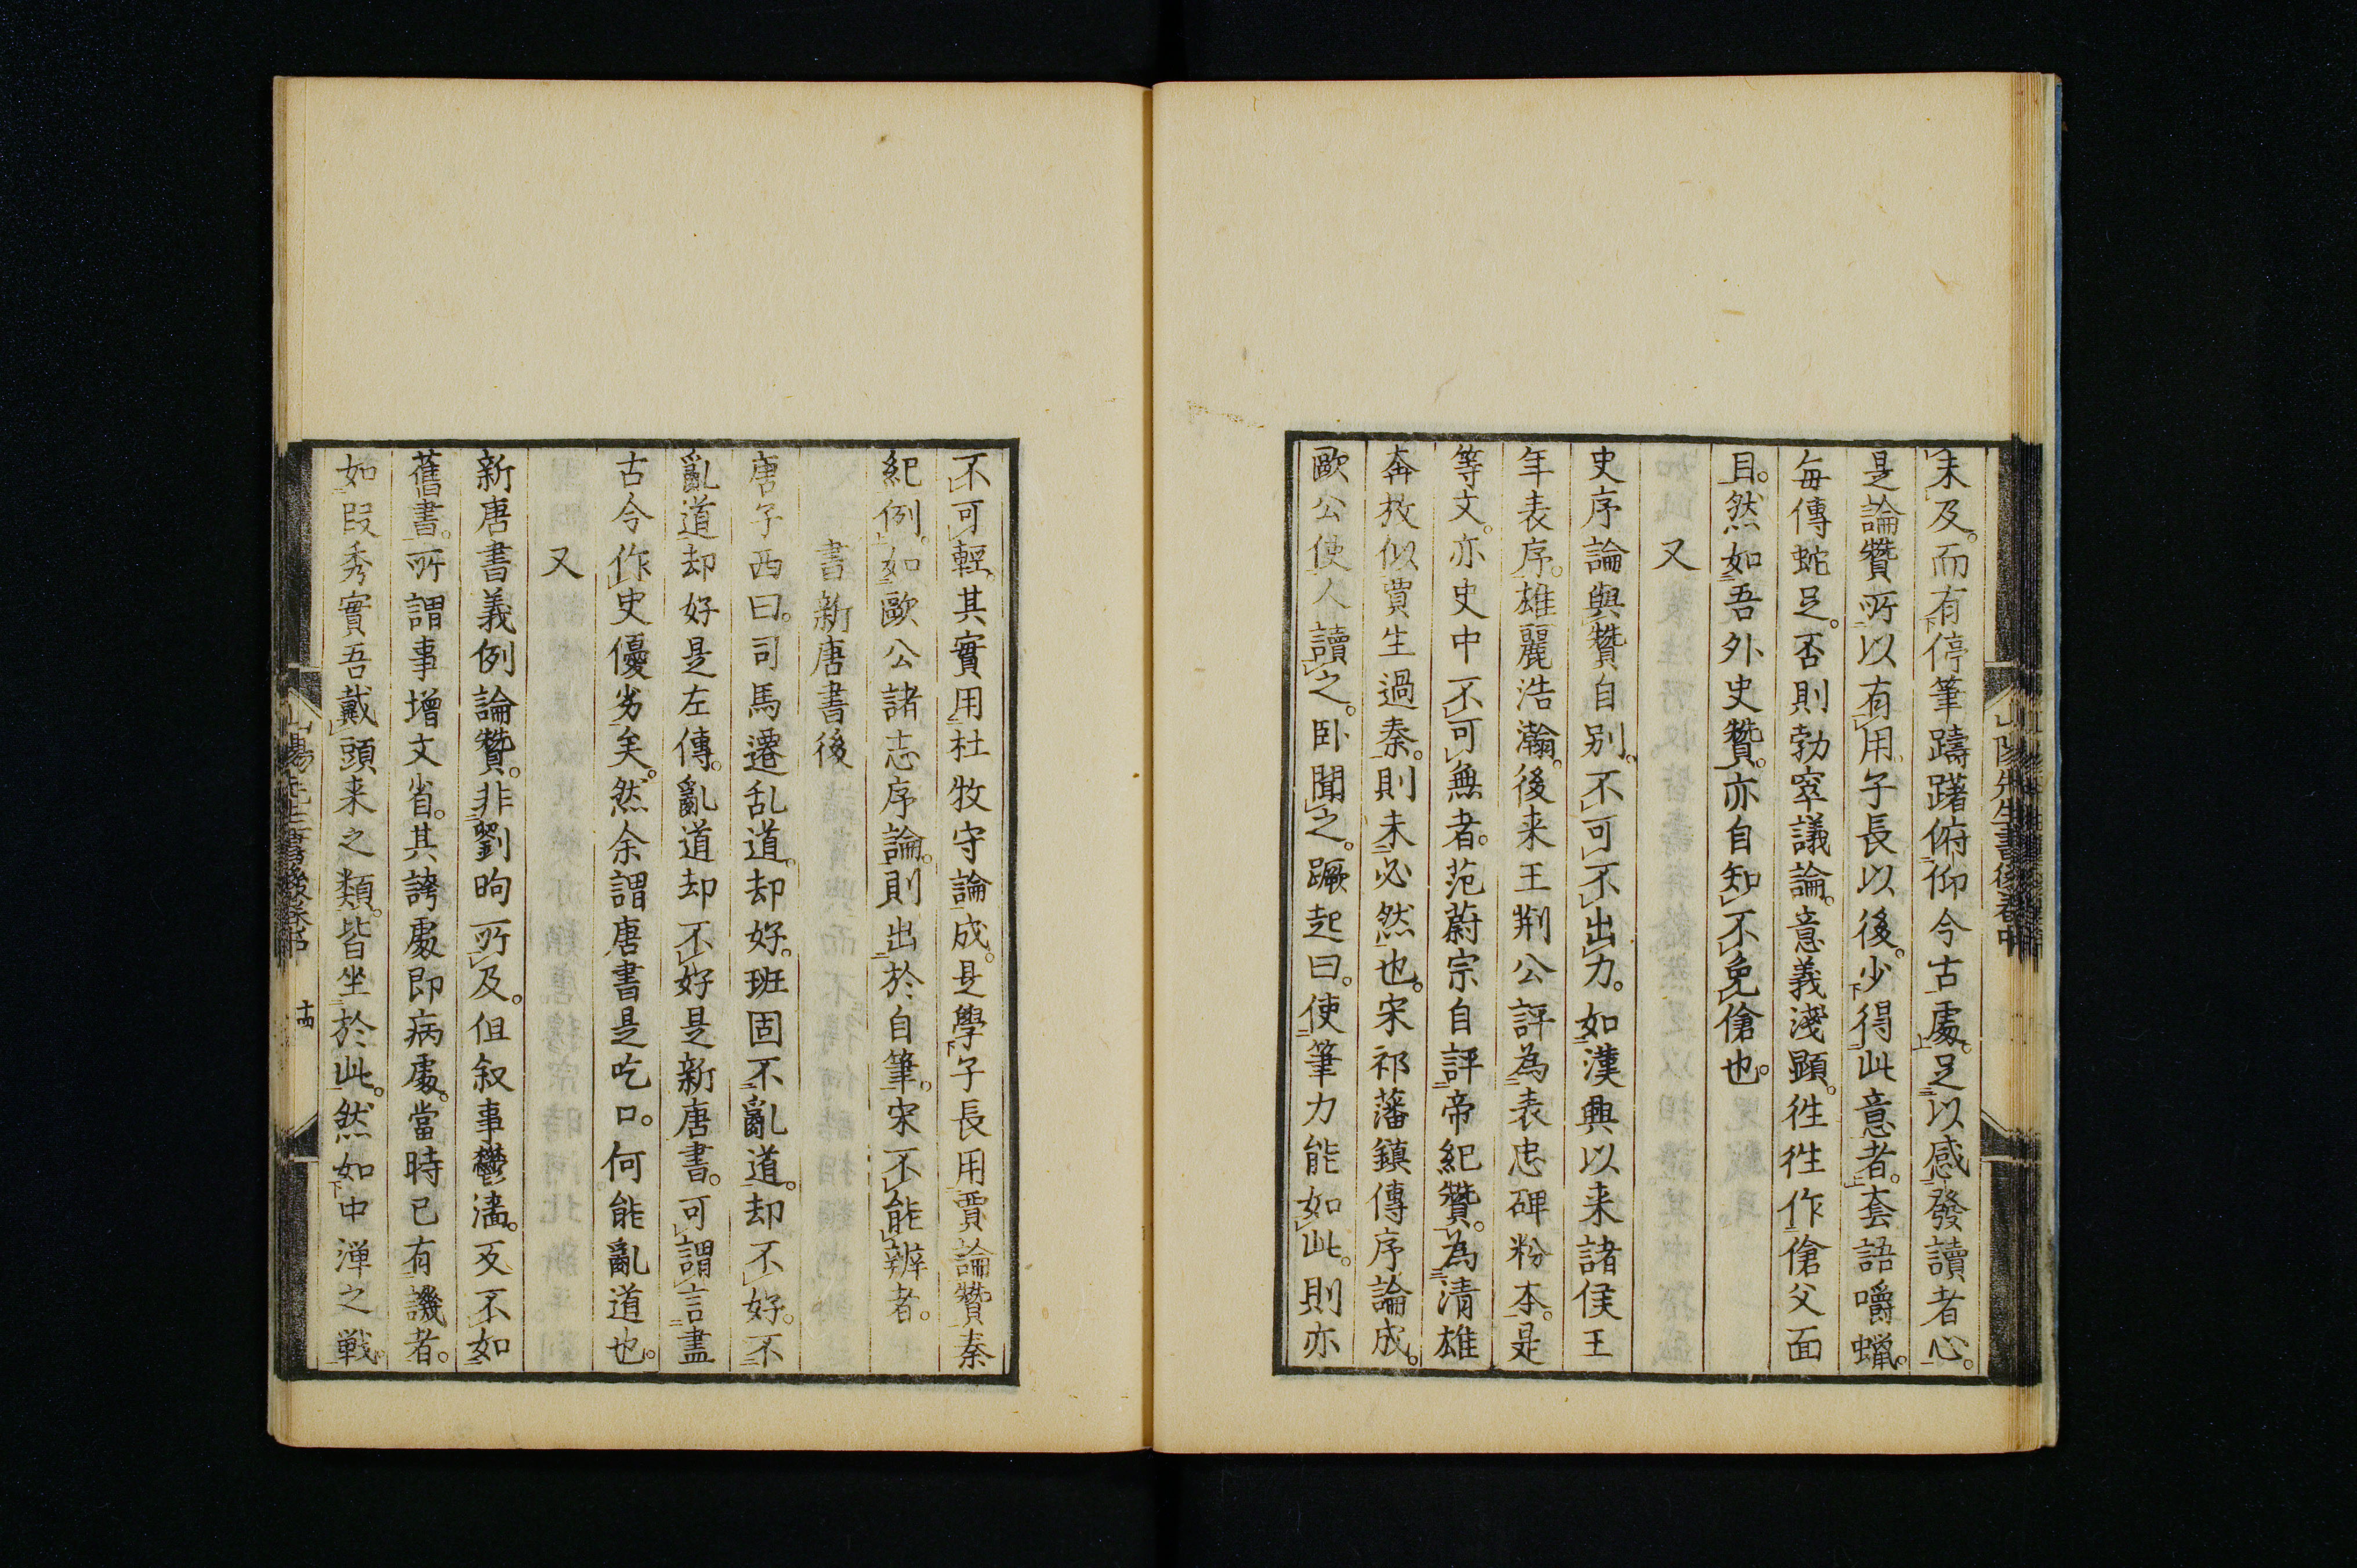 未及。而有停筆躊躇俯仰今古處。足以感發讀者心。
是論贊所以有用子長以後。少得此意者。套語嚼蠟。
每傳蛇足。否則勃窣議論。意義淺顯。徃徃作傖父面
目。然如吾外史贊。亦自知不免傖也。
又
史序論與贊自別。不可不出力。如漢興以来諸侯王
年表序。雄麗浩瀚。後来王荆公評為表忠碑粉本。是
等文。亦史中不可無者。范蔚宗自評帝紀贊。為清雄
奔放似賈生過秦。則未必然也。宋祁藩鎮傳序論成。
歐公使人讀之。卧聞之。蹶起曰。使筆力能如此。則亦
不可輕。其實用杜牧守論成。是學子長用賈論贊秦
紀例。如歐公諸志序論。則出於自筆。宋不能辦者。
書新唐書後
唐子西曰。司馬遷乱道。却好。班固不亂道。却不好。不
亂道却好是左傳。亂道却不好是新唐書。可謂言盡
古今作史優劣矣。然余謂唐書是吃口。何能亂道也。
又
新唐書義例論贊。非劉昫所及。但叙事鬱澁。反不如
舊書。所謂事增文省。其誇處即病處。當時已有譏者。
如段秀實吾戴頭来之類。皆坐於此。然如中渾之戦。
山陽先生書後卷中
十四